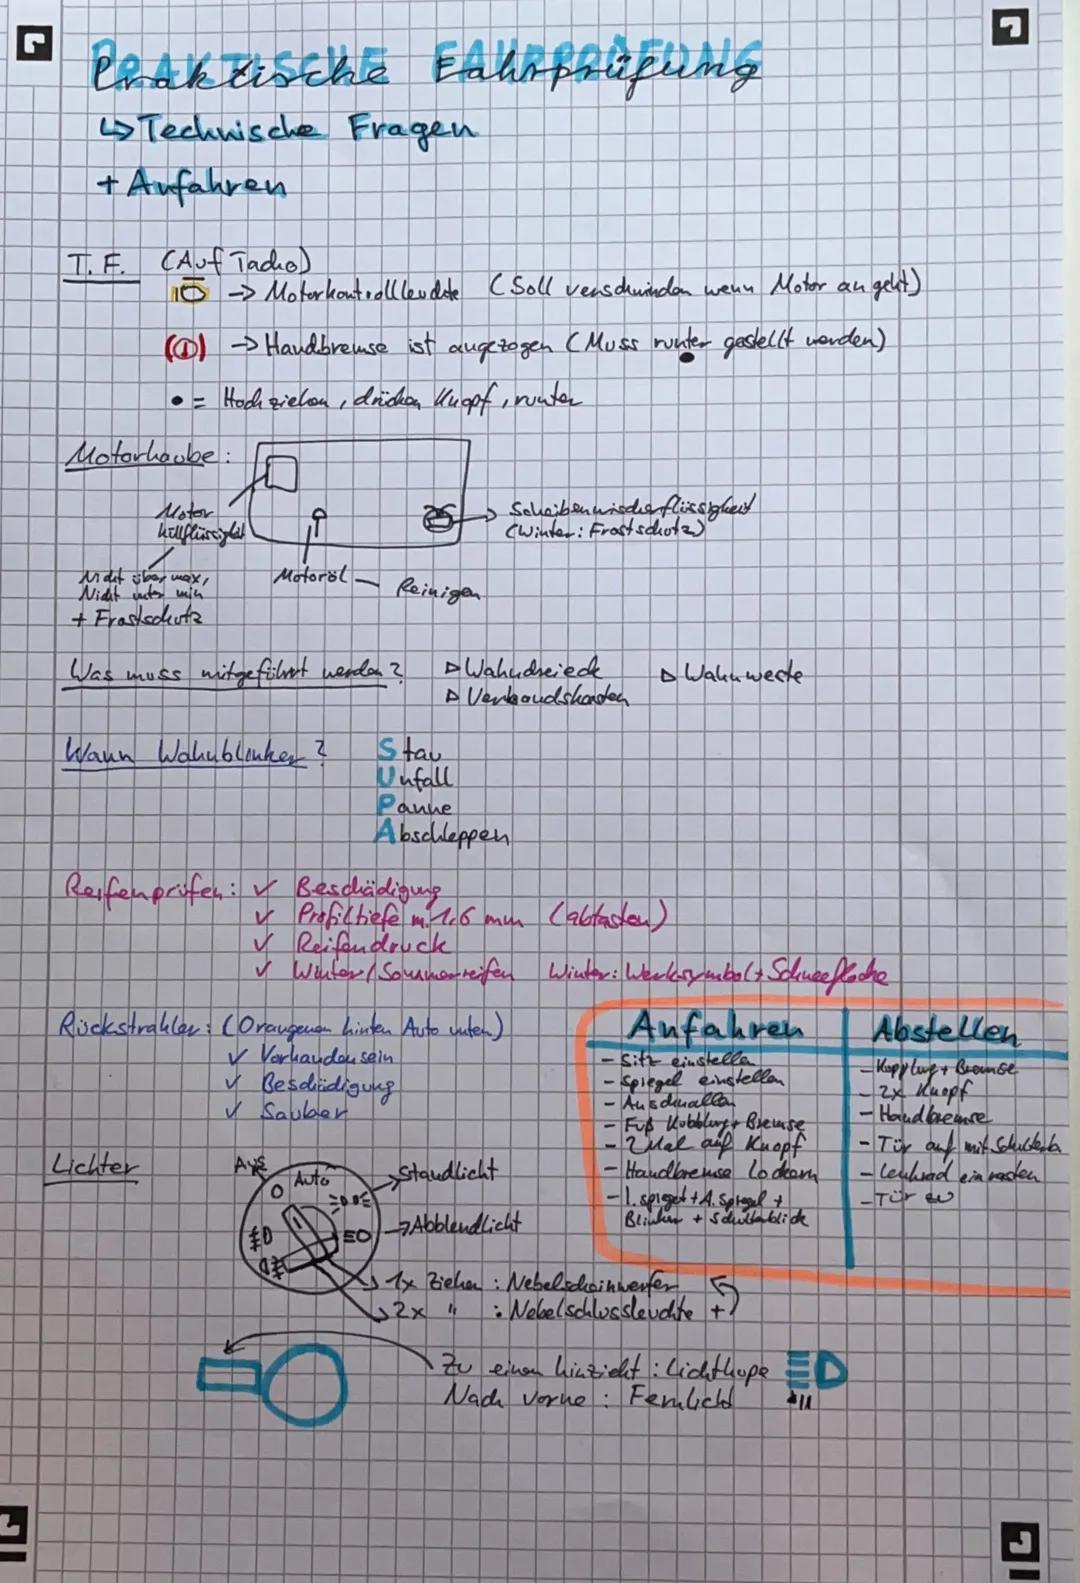 Praktische Fahrprüfung
↳ Technische Fragen
+ Anfahren
T. F. (Auf Tacho)
→ Motorkontrollleuchte (Soll verschwinden wenn Motor an geht)
(!) → Handbremse ist angezogen (Muss runter gestellt werden)
• = Hoch ziehen, drücken Knopf, runter
Motorhaube:
Motor
kühlflüssigkeit
Scheibenwischerflüssigkeit
(Winter: Frostschutz)
Nicht über max,
Nicht unter min
+ Frostschutz
Motoröl — Reinigen
Was muss mitgeführt werden? ▷ Wahndreieck ▷ Wahnweste
▷ Verbandskasten
Wann Wahnblinker? Stau
Unfall
Panne
Abschleppen
Reifenprüfen: ✓ Beschädigung
✓ Profiltiefe m. 1,6 mm (abtasten)
✓ Reifendruck
✓ Winter/Sommerreifen Winter: Werksymbol + Schneeflocke
Rückstrahler: (Orangenen hinten Auto unten)
✓ Vorhandensein
✓ Beschädigung
✓ Sauber
Anfahren
- Sitz einstellen
- Spiegel einstellen
- Anschnallen
- Fuß Kubblung + Bremse
- 2 Mal auf Knopf
- Handbremse lockern
- I. spiegel + A. Spiegel +
Blinker + Schulterblick
Abstellen
- Kupplung + Bremse
- 2x Knopf
- Handbremse
- Tür auf mit Schulterb
- Lenkrad einrasten
- Tür zu
Lichter
Aus
O
Auto
Standlicht
→ Abblendlicht
1x Ziehen : Nebelscheinwerfer
2x " : Nebelschlussleuchte +
Zu einem hinzieht : Lichthupe
Nach vorne : Fernlicht